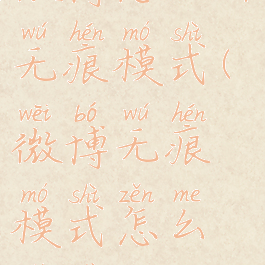 wú hén mó shì
无痕模式(
wēi bó wú hén
微博无痕
mó shì zěn me
模式怎么